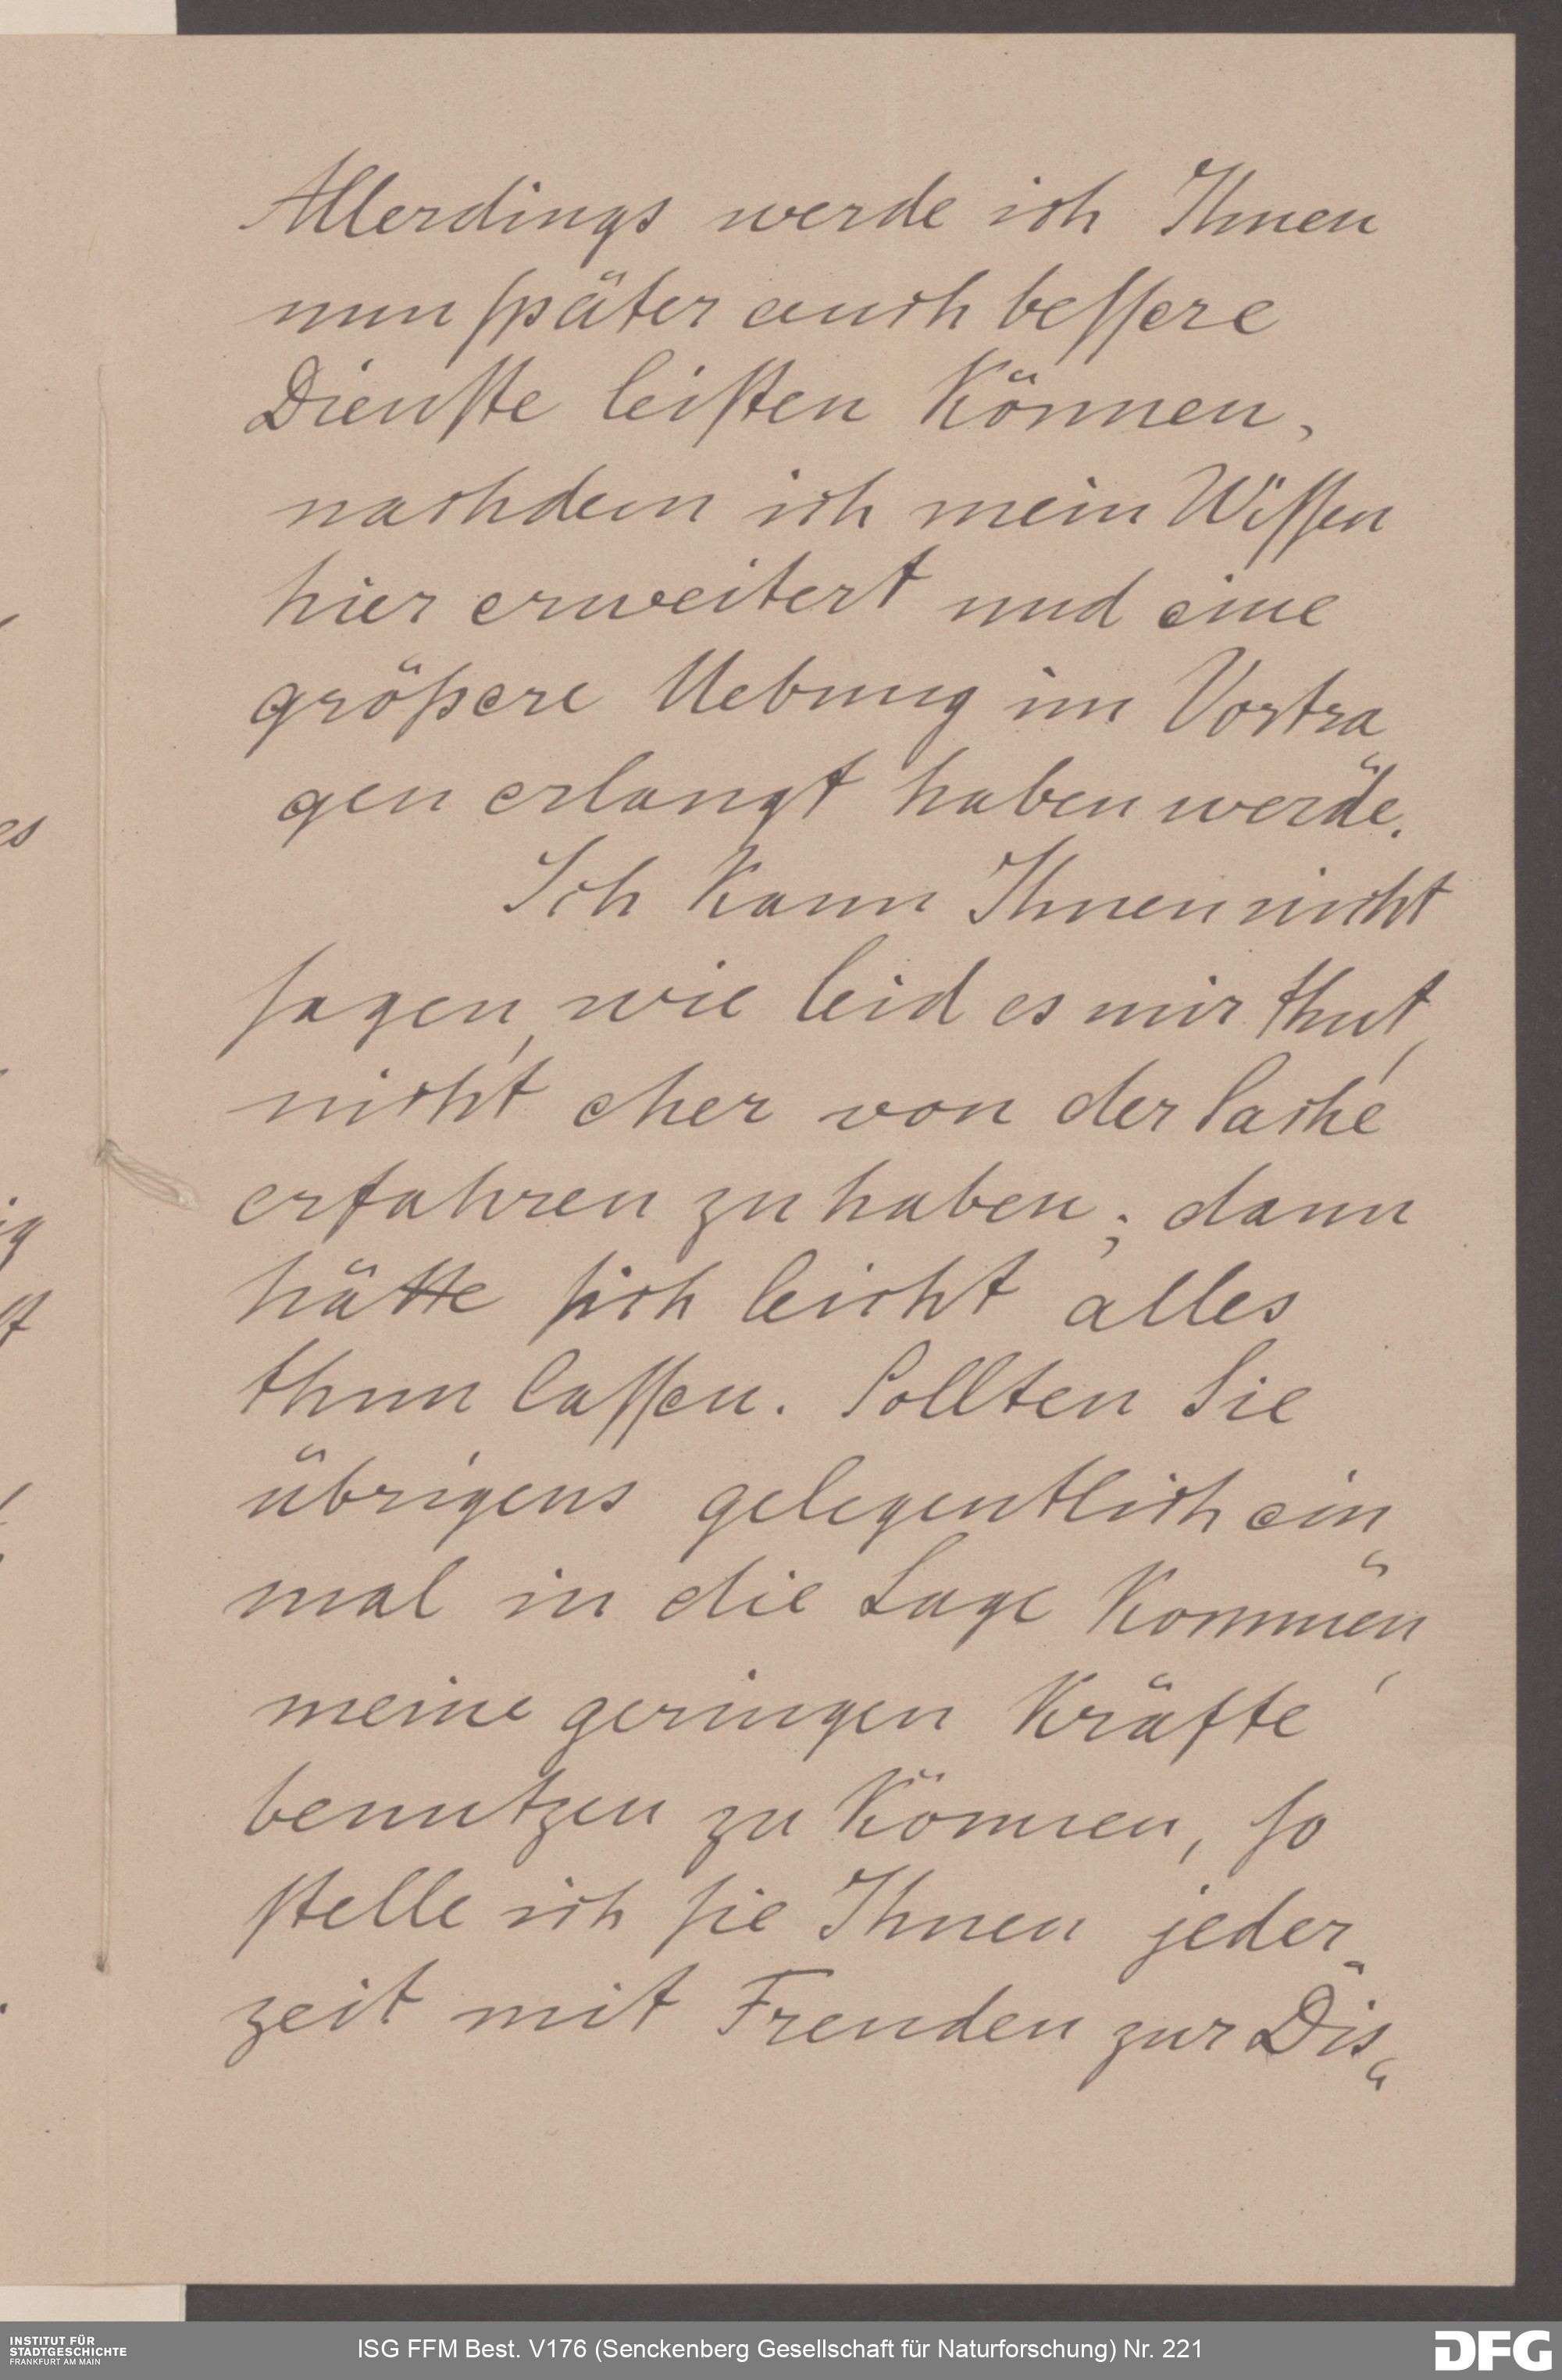 Allerdings werde ich Ihnen
nun später auch bessere
Dienste leisten können,
nachdem ich mein Wissen
hier erweitert und eine
größere Uebung im Vortra„
gen erlangt haben werde.
Ich kann Ihnen nicht
sagen, wie leid es mir thut,
nicht eher von der Sache
erfahren zu haben; dann
hätte sich leicht alles
thun lassen. Sollten Sie
übrigens gelegentlich ein„
mal in die Lage kommen,
meine geringen Kräfte
benutzen zu können, so
stelle ich sie Ihnen jeder-
zeit mit Freuden zur Dis„
es
ig
st
INSTITUT FÜR
STADTGESCHICHTE
FRANKFURT AM MAIN
ISG FFM Best. V176 (Senckenberg Gesellschaft für Naturforschung) Nr. 221
DFG